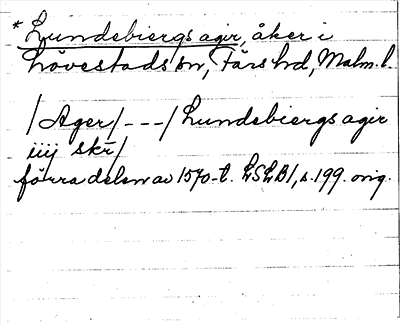 * Lundebiergs agir, åker i
Lövestads sn, Färs hd, Malm. l.
/Ager/---/Lundebiergs agir
iiij skr/
förra delen av 1570-t. LSLB1, s. 199. orig.